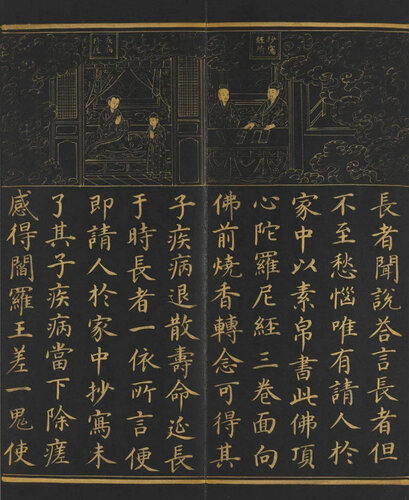 長者聞說荅言長者但
不至愁惱唯有請人於
家中以素帛書此佛頂
心陀羅尼經三卷面向
佛前燒香轉念可得其
子疾病退散壽命延長
于時長者一依所言便
即請人於家中抄寫未
了其子疾病當下除瘥
感得閻羅王差一鬼使